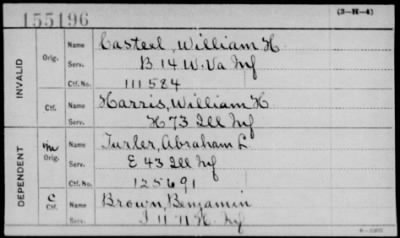 155196
(3-H-4)
INVALID
Orig.
Name Casteel, William H.
Serv. B 14 W. Va Inf
Ctf. No. 111584
Ctf.
Name Harris, William H
Serv. H 73 Ill Inf
DEPENDENT
m
Orig.
Name Turler, Abraham L
Serv. E 43 Ill Inf
Ctf. No. 125691
C
Ctf.
Name Brown, Benjamin
Serv. I 11 N.H. Inf